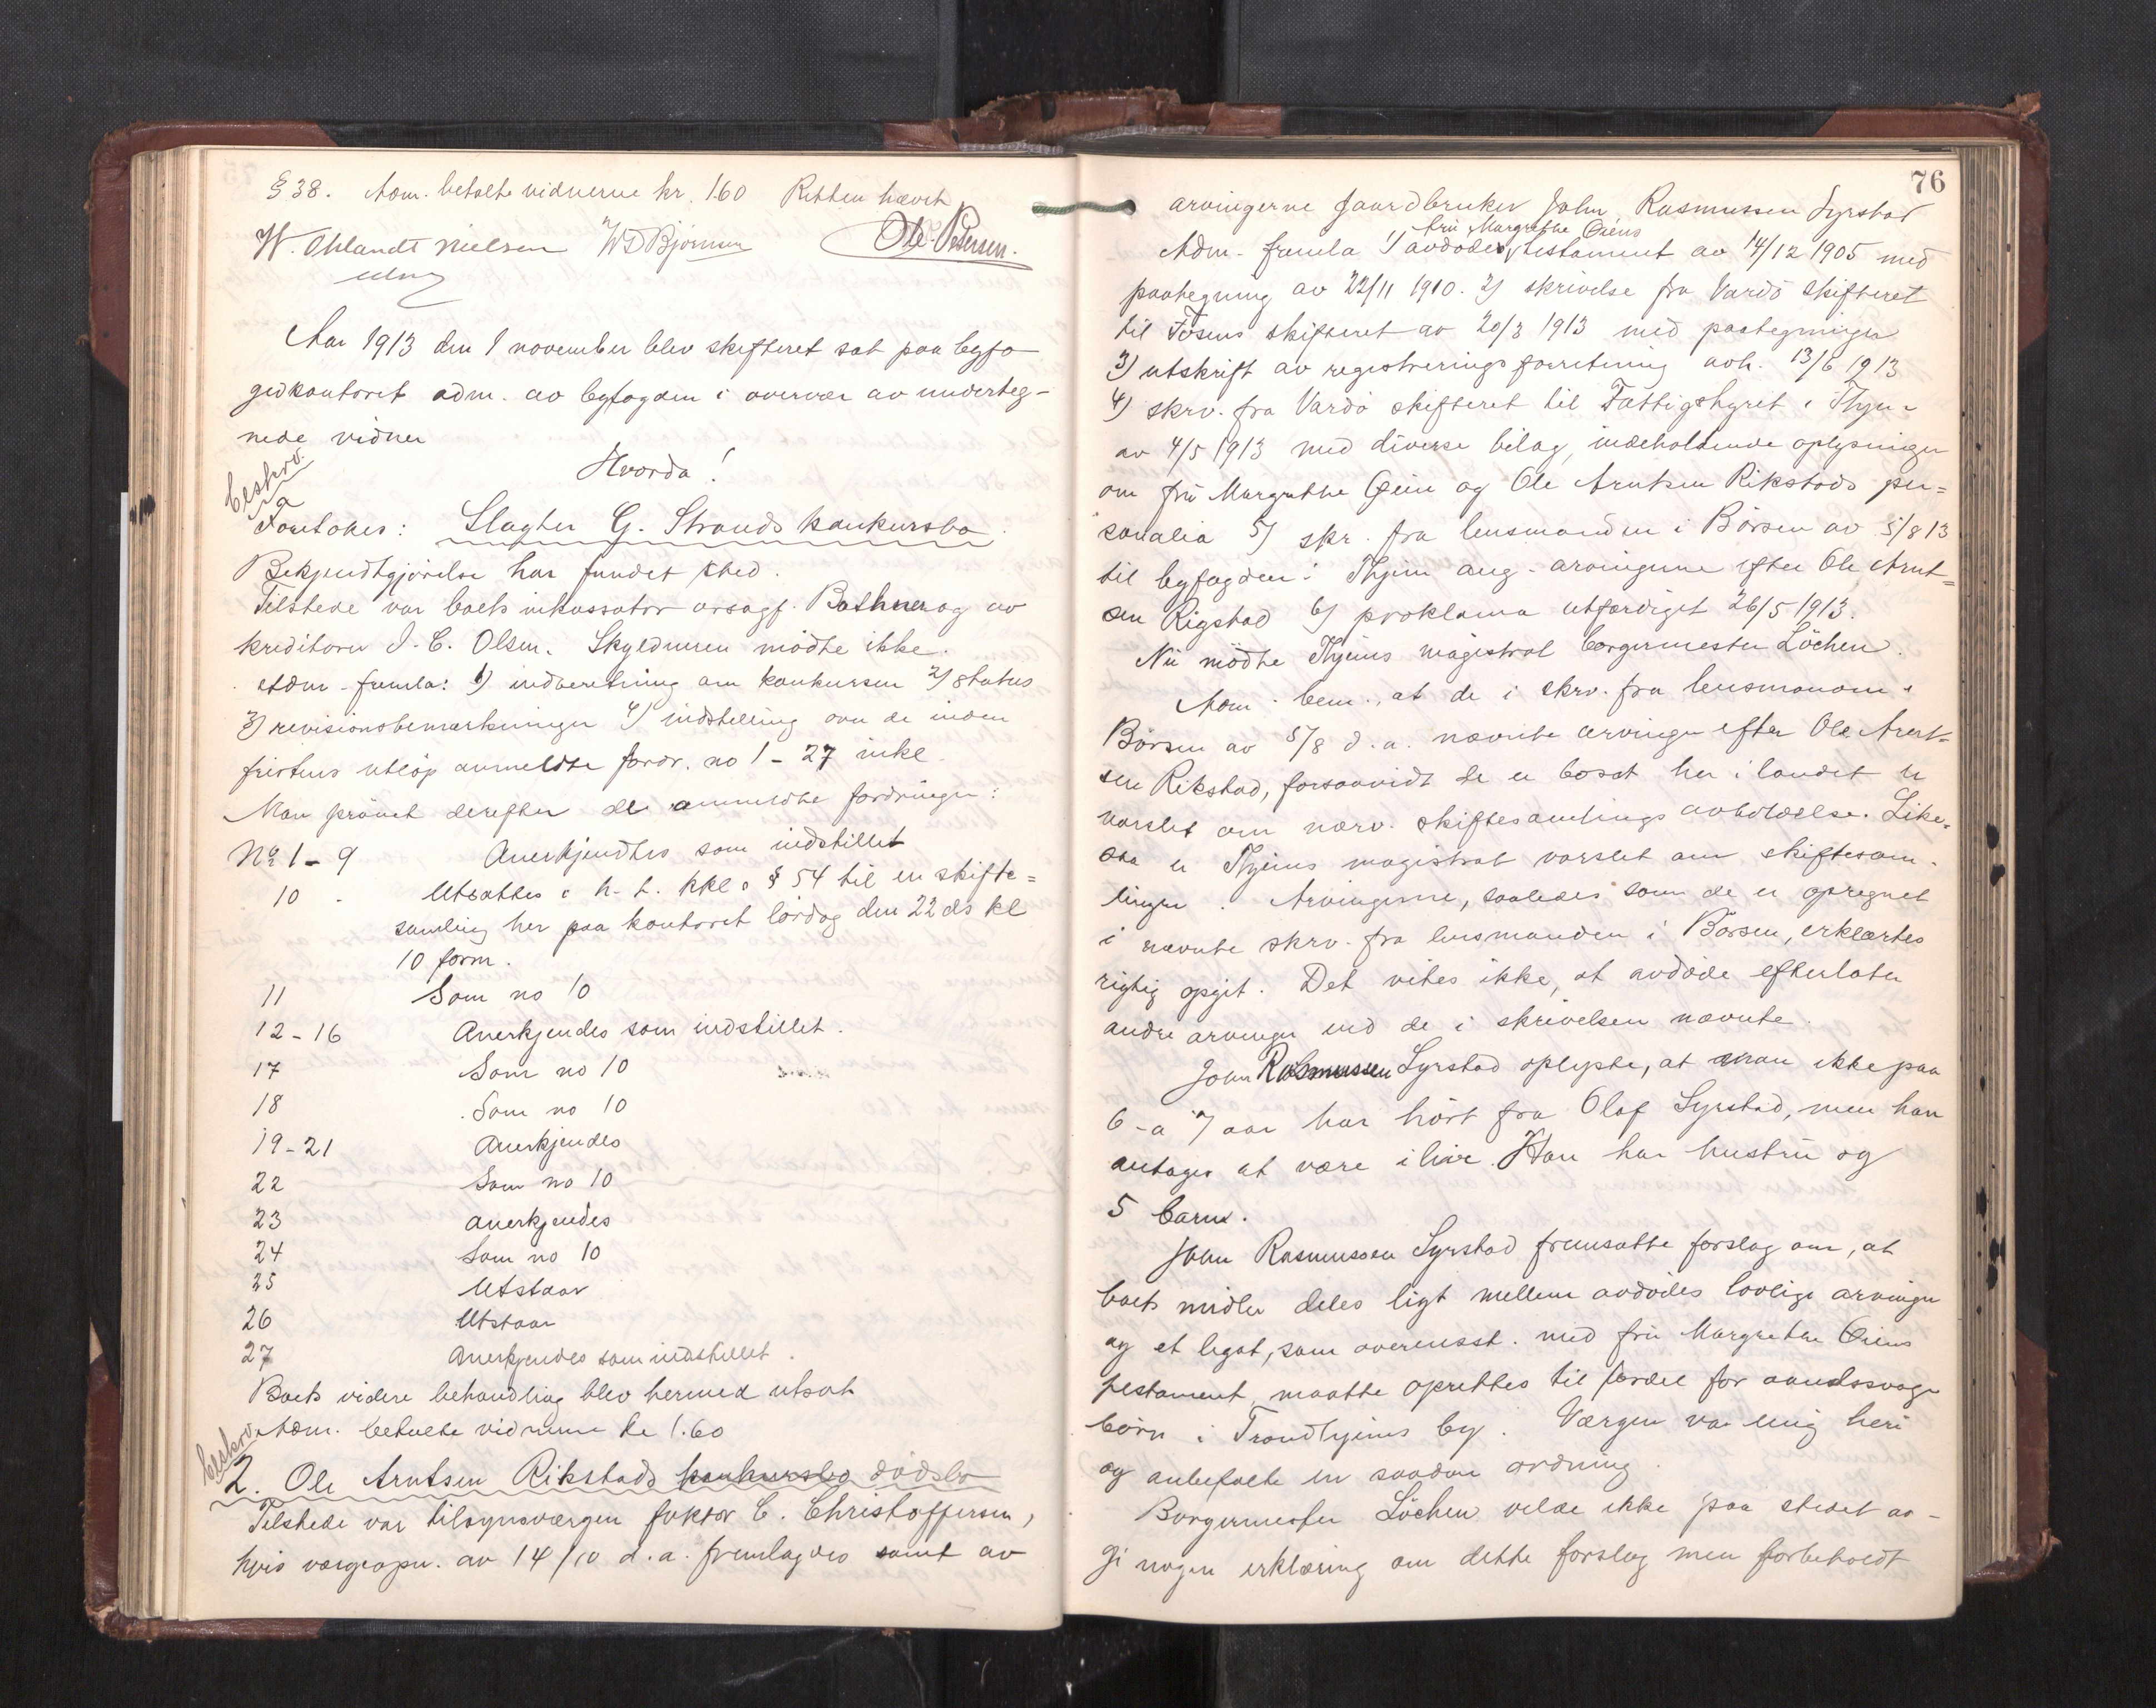 § 38. Adm. betalte vidnerne kr. 1.60 Retten hævet
W. Uhlandt Nielsen W D Bjørnsen Ole Pedersen.
Aar 1913 den 1 november blev skifteret sat paa byfo-
gedkontoret adm. av byfogden i overvær av underteg-
nede vidner
Hvorda!
beskrv.
a
Foretokes: Slagter G. Strands konkursbo.
Bekjendtgjörelse har fundet sted.
Tilstede var boets inkassator orsagf. Bothner og av
kreditorer J. C. Olsen. Skyldneren mödte ikke.
Adm. fremla: 1) indberetning om konkursen 2) Status
3) revisionsbemerkninger 4) indstilling over de inden
fristens utlöp anmeldte fordr. no 1 - 27 inkl.
Man prövet derefter de anmeldte fordringer:
No 1 - 9 Anerkjendtes som indstillet
10 - Utsattes i h. t. kkl. § 54 til en skifte=
samling her paa kontoret lördag den 22 ds kl
10 form.
11 Som no 10
12 - 16 Anerkjendes som indstillet.
17 Som no 10
18 Som no 10
19 - 21 Anerkjendes
22 Som no 10
23 Anerkjendes
24 Som no 10
25 Utstaar
26 Utstaar
27 Anerkjendes som indstillet.
Boets videre behandling blev hermed utsat
Adm. betalte vidnerne kr 1.60
beskrv.
2. Ole Arntsen Rikstads konkursbo dödsbo
Tilstede var tilsynsværgen faktor C. Christoffersen,
hvis værgeopn. av 14/10 d.a. fremlagdes samt av
76
arvingerne gaardbruker John Rasmussen Syrstad
fru Margrethe Qeins
Adm. fremla 1) avdödes testament av 14/12 1905 med
paategning av 22/11 1910. 2) skrivelse fra Vardö skifteret
til Fosens skifteret av 20/3 1913 med paategninger
3) utskrift av registreringsforretning avh. 13/6 1913
4) skrv. fra Vardö skifteret til Fattigstyret i Thjem
av 4/5 1913 med diverse bilag, indeholdende oplysninger
om fru Margrethe Qein og Ole Arntsen Rikstads per=
sonalia 5) skr. fra lensmanden i Börsen av 5/8 13
til byfogden i Thjem ang. arvingerne efter Ole Arnt=
sen Rigstad 6) proklama utfærdiget 26/5 1913.
Nu mödte Thjems magistrat borgermester Löchen.
Adm. bem., at de i skrv. fra lensmanden i
Börsen av 5/8 d.a. nævnte arvinger efter Ole Arnt=
sen Rikstad, forsaavidt de er bosat her i landet er
varslet om nærv. skiftesamlings avholdelse. Like=
saa er Thjems magistrat varslet om skiftesam-
lingen. Arvingerne, saaledes som de er opregnet
i nævnte skrv. fra lensmanden i Börsen, erklærtes
rigtig opgit. Det vites ikke, at avdöde efterlater
andre arvinger end de i skrivelsen nævnte.
John Rasmussen Syrstad oplyste, at man ikke paa
6 - a 7 aar har hört fra Olaf Syrstad, men han
antages at være ilive. Han har hustru og
5 barn.
John Rasmussen Syrstad fremsatte forslag om, at
boets midler deles ligt mellem avdödes lovlige arvinger
og et legat, som overensst. med fru Margrethe Qeins
testament maatte oprettes til fordel for aandssvage
börn i Trondhjems by. Værgen var enig heri
og anbefalte en saadan ordning.
Borgermester Löchen vilde ikke paa stedet av-
gi nogen erklæring om dette forslag men forbeholdt